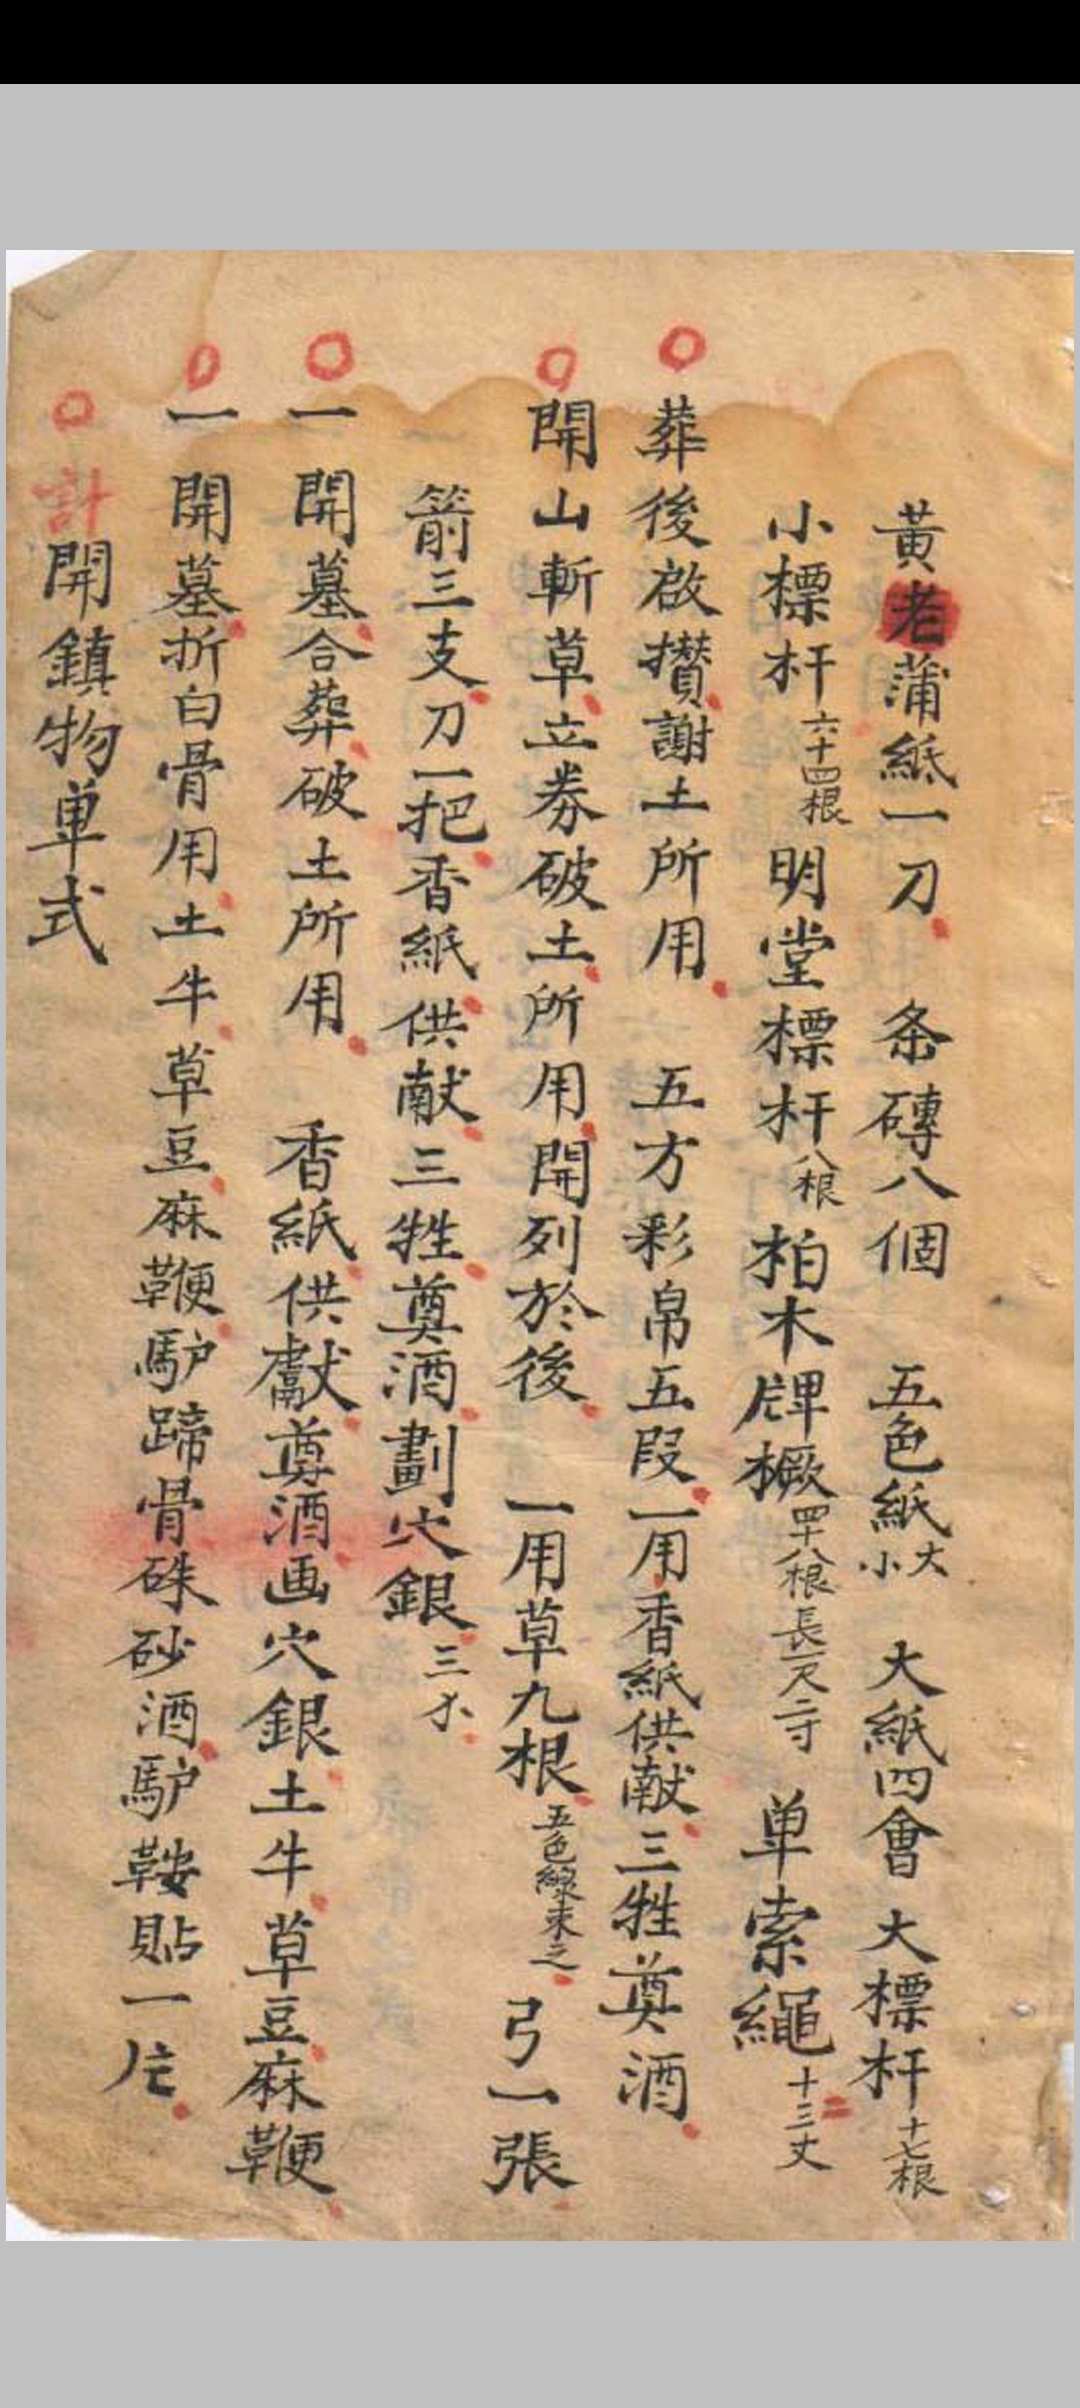 黄老蒲紙一刀 条磚八個 五色紙大小 大紙四會 大標杆十七根
小標杆六十四根 明堂標杆八根 柏木牌橛四十八根長一尺二寸 单索繩十三丈
葬後啟攢謝土所用 五方彩帛五段一用香紙供献三牲奠酒
開山斬草立券破土所用開列於後 一用草九根五色線束之 弓一張
箭三支刀一把香紙供献三牲奠酒劃穴銀三
一開墓合葬破土所用 香紙供獻奠酒画穴銀土牛草豆麻鞭
一開墓折白骨用土牛草豆麻鞭馿蹄骨硃砂酒馿鞍貼一
計開鎮物单式